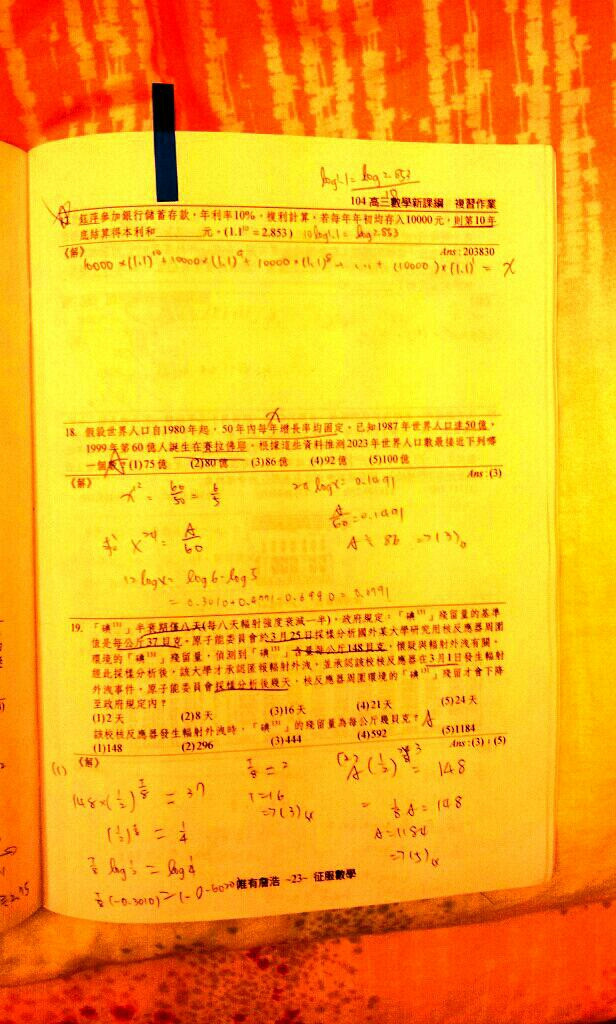 log1.1 = log2.853
10
104 高三數學新課綱 複習作業
鈺萍參加銀行儲蓄存款，年利率10%，複利計算，若每年年初均存入10000元，則第10年
底結算得本利和______元。(1.1¹⁰ = 2.853) 10log1.1 = log2.853
《解》
Ans：203830
10000×(1.1)¹⁰+10000×(1.1)⁹+10000×(1.1)⁸+ ... + (10000)×(1.1)¹ = x
18. 假設世界人口自1980年起，50年內每年增長率均固定，已知1987年世界人口達50億，
1999年第60億人誕生在賽拉佛耶。根據這些資料推測2023年世界人口數最接近下列哪
一個數？(1)75億 (2)80億 (3)86億 (4)92億 (5)100億
《解》
Ans：(3)
x¹² = 60/50 = 6/5
24 logx = 0.1491
求 x²⁴ = A/60
A/60 = 0.1491
A ≒ 86 ⇒(3)
12logx = log6-log5
= 0.3010+0.4771-0.6990 = 0.0791
19. 「碘¹³¹」半衰期僅八天(每八天輻射強度衰減一半)，政府規定：「碘¹³¹」殘留量的基準
值是每公斤37貝克。原子能委員會於3月25日採樣分析國外某大學研究用核反應器周圍
環境的「碘¹³¹」殘留量，偵測到「碘¹³¹」含量每公斤148貝克，懷疑與輻射外洩有關。
經此採樣分析後，該大學才承認匿報輻射外洩，並承認該校核反應器在3月1日發生輻射
外洩事件。原子能委員會採樣分析後幾天，核反應器周圍環境的「碘¹³¹」殘留才會下降
至政府規定內？
(1)2天 (2)8天 (3)16天 (4)21天 (5)24天
該校核反應器發生輻射外洩時，「碘¹³¹」的殘留量為每公斤幾貝克？A
(1)148 (2)296 (3)444 (4)592 (5)1184
《解》
Ans：(3)；(5)
(1)
148×(1/2)^(T/8) = 37
(1/2)^(T/8) = 1/4
T/8 log1/2 = log1/4
T/8 = 2
T=16
⇒(3)
(2) A(1/2)³ = 148
= 1/8 A = 148
A=1184
⇒(5)
唯有詹浩 ~23~ 征服數學